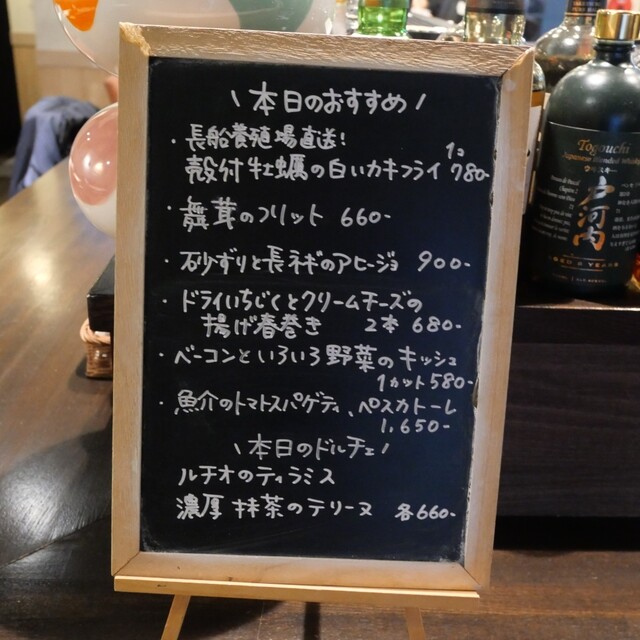 \ 本日のおすすめ /
・長船養殖場直送!
殻付牡蠣の白いカキフライ 1コ 780-
・舞茸のフリット 660-
・砂ずりと長ネギのアヒージョ 900-
・ドライいちじくとクリームチーズの
揚げ春巻き 2本 680-
・ベーコンといろいろ野菜のキッシュ
1カット 580-
・魚介のトマトスパゲティ、ペスカトーレ
1,650-
\ 本日のドルチェ /
ルチオのティラミス
濃厚抹茶のテリーヌ 各660-
Togouchi
Japanese Blended Whisky
戸河内